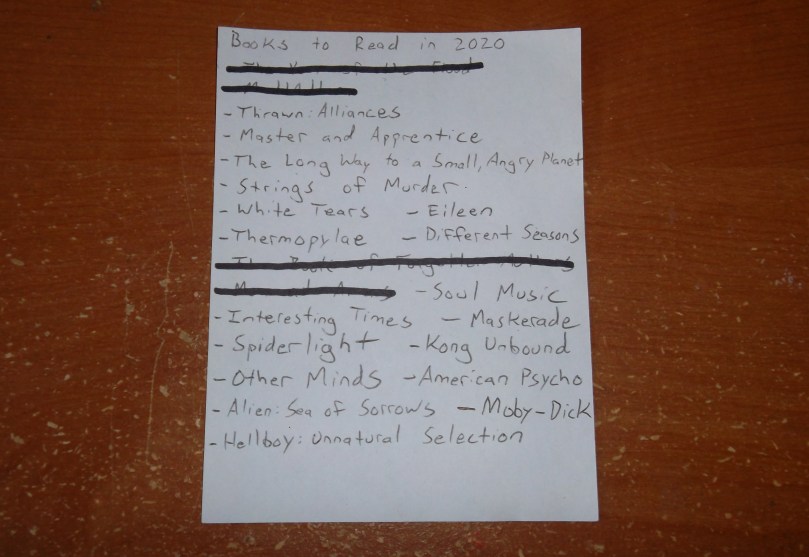 Books to Read in 2020
- Thrawn: Alliances
- Master and Apprentice
- The Long Way to a Small, Angry Planet
- Strings of Murder.
- White Tears - Eileen
- Thermopylae - Different Seasons
- Soul Music
- Interesting Times - Maskerade
- Spiderlight - Kong Unbound
- Other Minds - American Psycho
- Alien: Sea of Sorrows - Moby-Dick
- Hellboy: Unnatural Selection